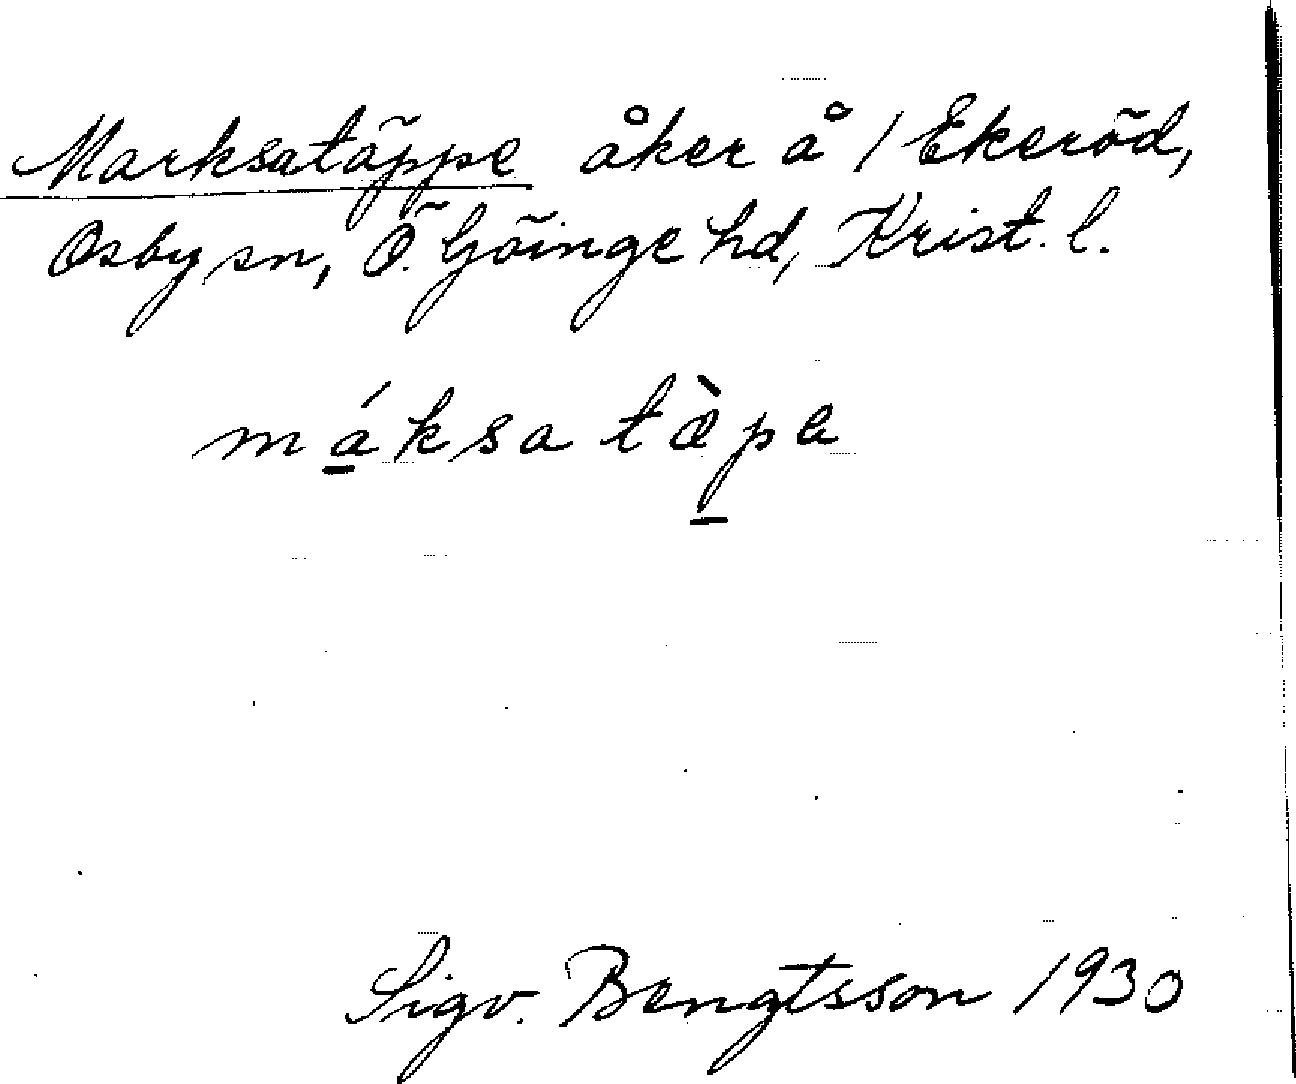 Marksatäppe åker å 1 Ekeröd,
Osby sn, Ö. Göinge hd, Krist. l.
máksa tæ̀pa
Sigv. Bengtsson 1930